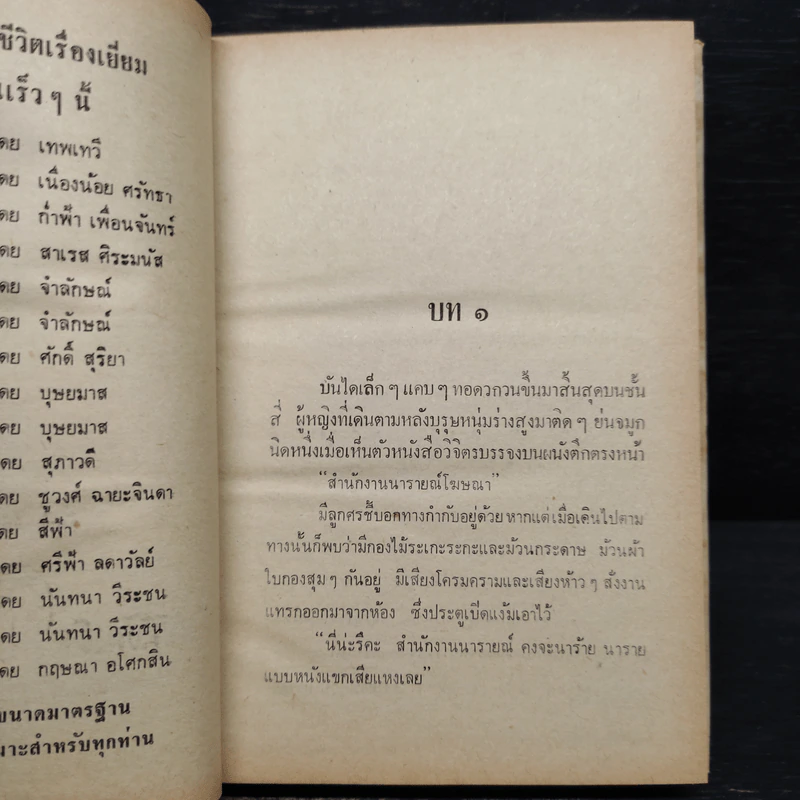 ชีวิตเรื่องเยี่ยม
เร็วๆ นี้
ดย เทพเทวี
ดย เนื่องน้อย ศรัทธา
ดย ก่ำฟ้า เพื่อนจันทร์
ดย สาเรส ศิระมนัส
ดย จำลักษณ์
ดย จำลักษณ์
ดย ศักดิ์ สุริยา
ดย บุษยมาส
ดย บุษยมาส
ดย สุภาวดี
ดย ชูวงศ์ ฉายะจินดา
ดย สีฟ้า
ดย ศรีฟ้า ลดาวัลย์
ดย นันทนา วีระชน
ดย นันทนา วีระชน
ดย กฤษณา อโศกสิน
ขนาดมาตรฐาน
มาะสำหรับทุกท่าน
บท ๑
บันไดเล็ก ๆ แคบ ๆ ทอดวกวนขึ้นมาสิ้นสุดบนชั้น
สี่ ผู้หญิงที่เดินตามหลังบุรุษหนุ่มร่างสูงมาติด ๆ ย่นจมูก
นิดหนึ่งเมื่อเห็นตัวหนังสือวิจิตรบรรจงบนผนังตึกตรงหน้า
“สำนักงานนารายณ์โฆษณา”
มีลูกศรชี้บอกทางกำกับอยู่ด้วย หากแต่เมื่อเดินไปตาม
ทางนั้นก็พบว่ามีกองไม้ระเกะระกะและม้วนกระดาษ ม้วนผ้า
ใบกองสุม ๆ กันอยู่ มีเสียงโครมครามและเสียงห้าว ๆ สั่งงาน
แทรกออกมาจากห้อง ซึ่งประตูเปิดแง้มเอาไว้
“นี่น่ะรึคะ สำนักงานนารายณ์ คงจะนาร้าย นาราย
แบบหนังแขกเสียแหงเลย”